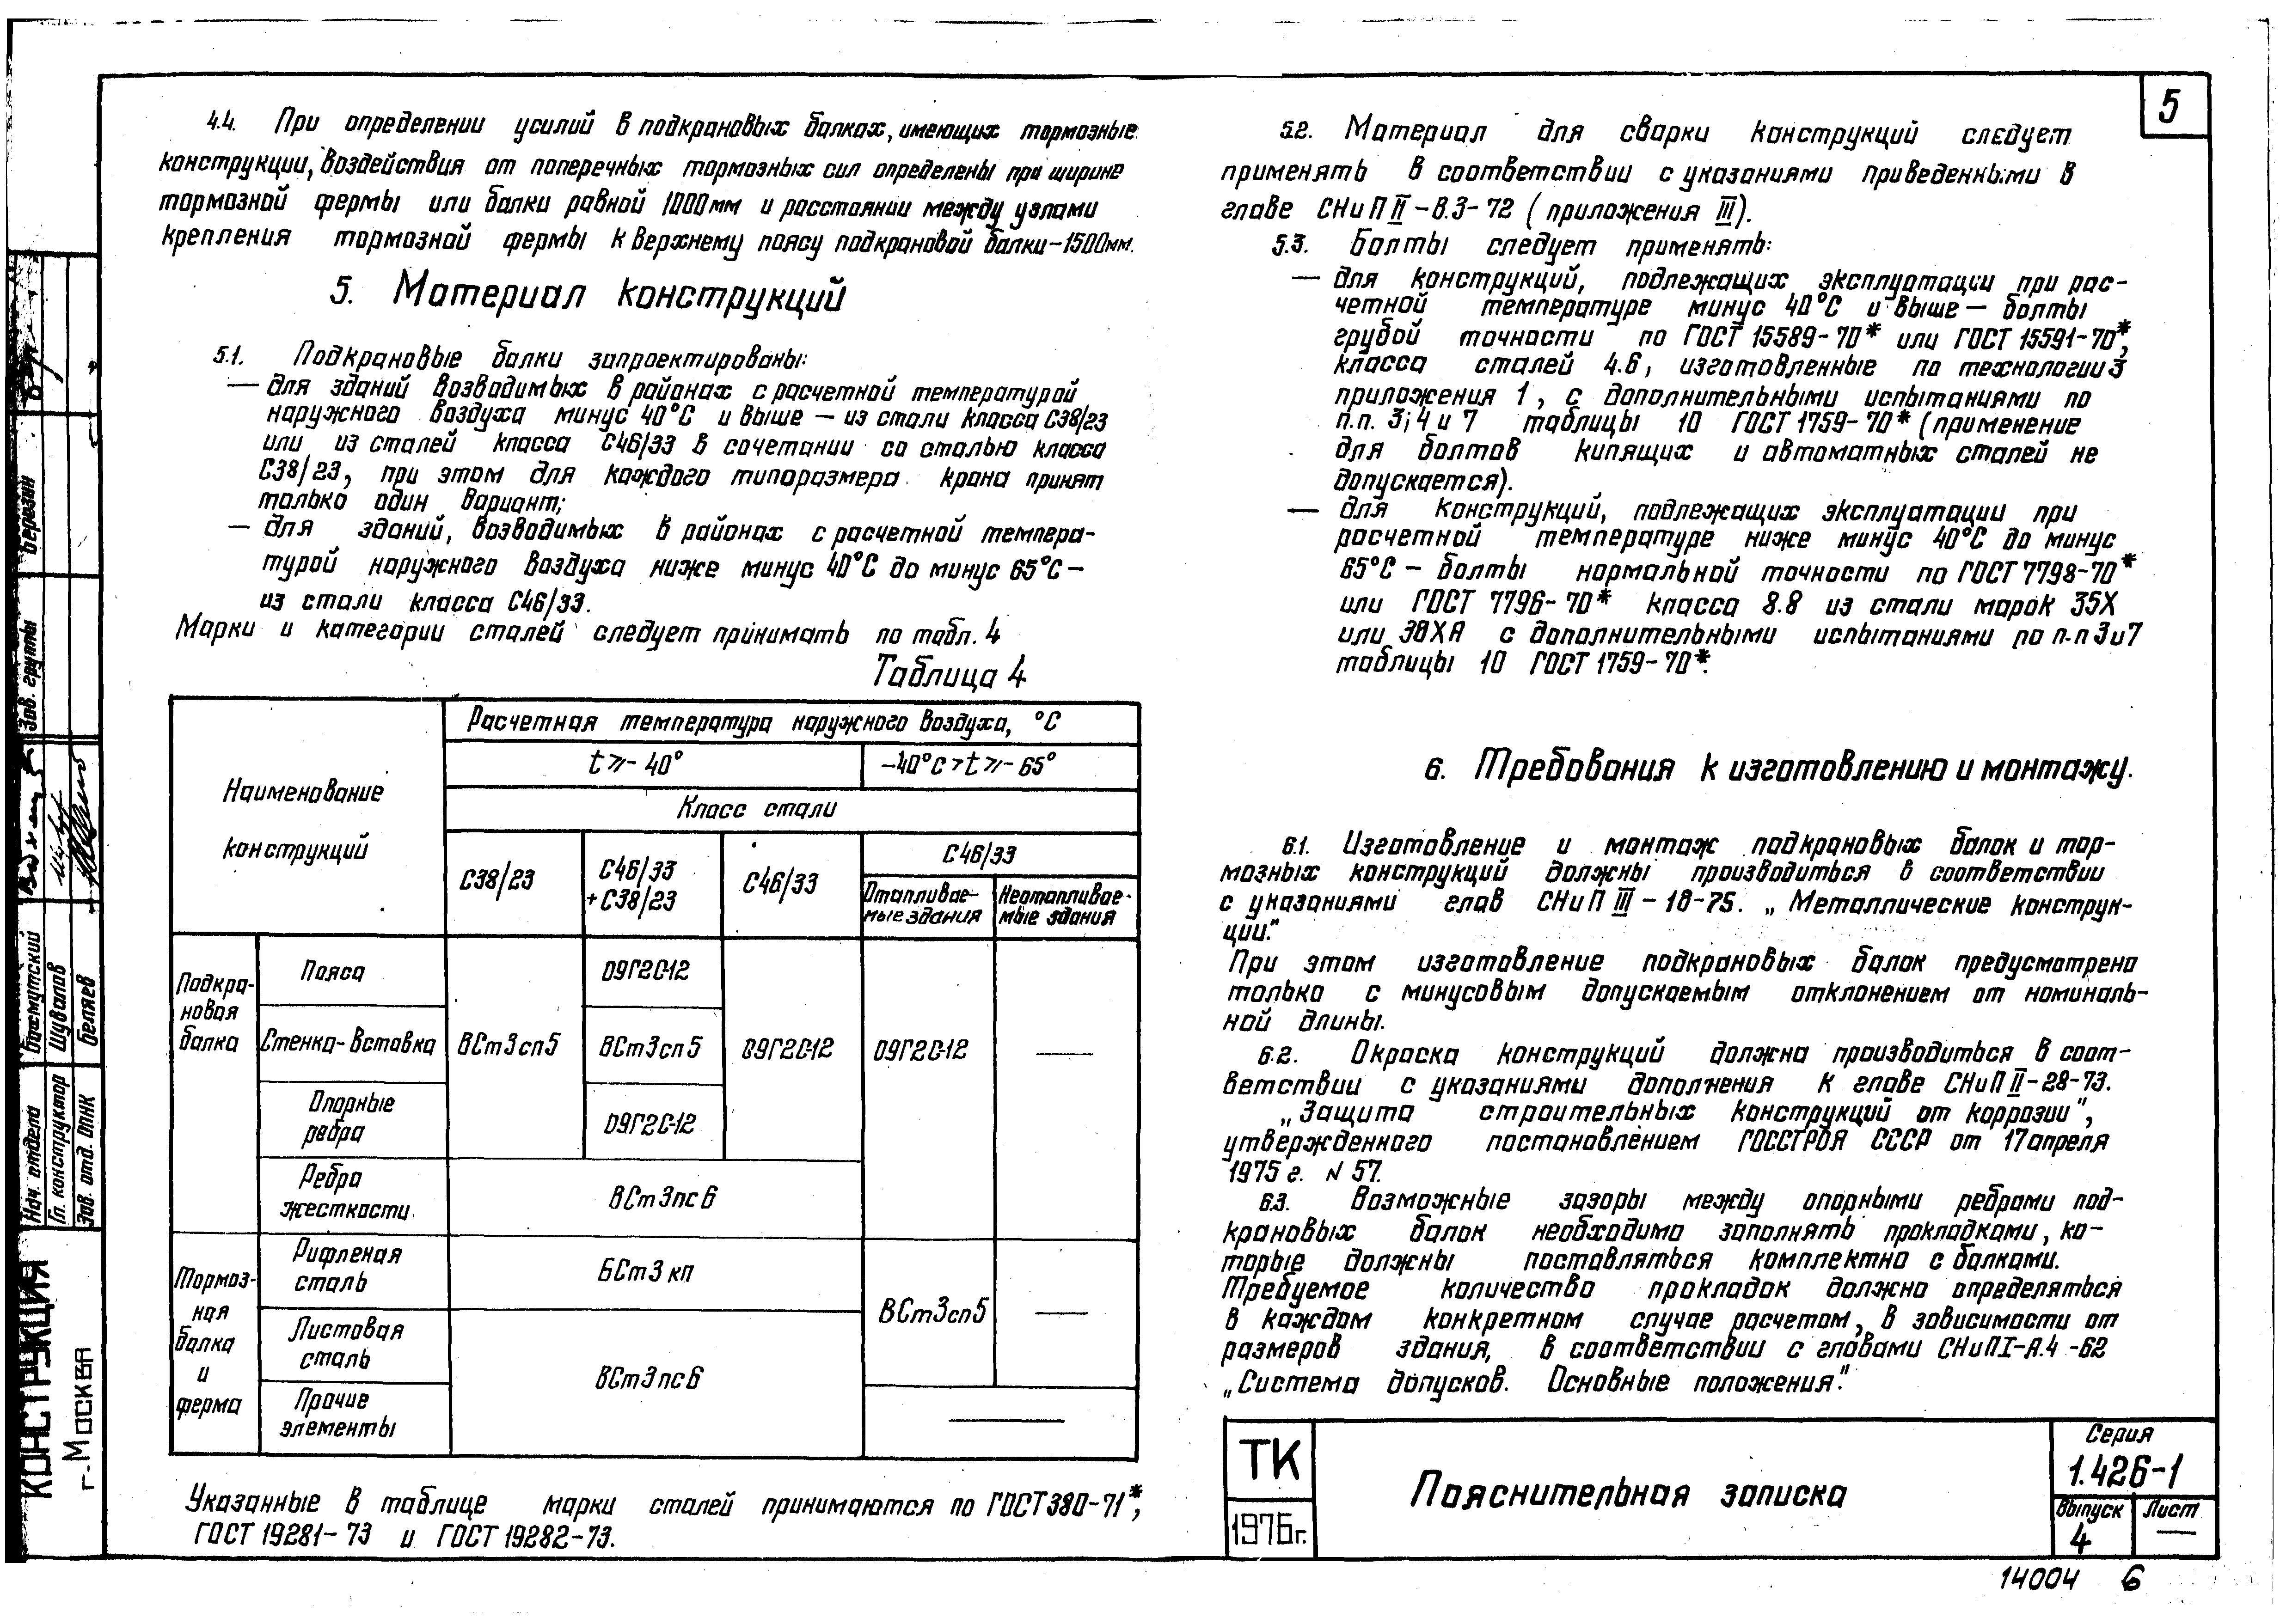 5
4.4. При определении усилий в подкрановых балках, имеющих тормозные
конструкции, воздействия от поперечных тормозных сил определены при ширине
тормозной фермы или балки равной 1000мм и расстоянии между узлами
крепления тормозной фермы к верхнему поясу подкрановой балки-1500мм.
5. Материал конструкций
5.1. Подкрановые балки запроектированы:
— для зданий возводимых в районах с расчетной температурой
наружного воздуха минус 40°С и выше — из стали класса С38/23
или из сталей класса С46/33 в сочетании со сталью класса
С38/23, при этом для каждого типоразмера крана принят
только один вариант;
— для зданий, возводимых в районах с расчетной темпера-
турой наружного воздуха ниже минус 40°С до минус 65°С -
из стали класса С46/33.
Марки и категории сталей следует принимать по табл. 4
Таблица 4
Наименование
конструкций
Расчетная температура наружного воздуха, °С
t ⩾ - 40°
-40°С > t ⩾ - 65°
Класс стали
С38/23
С46/33
+ С38/23
С46/33
С46/33
Отапливае-
мые здания
Неотапливае-
мые здания
Подкра-
новая
балка
Пояса
Стенка-вставка
Опорные
ребра
Ребра
жесткости
ВСт3сп5
09Г2С-12
ВСт3сп5
09Г2С-12
09Г2С-12
09Г2С-12
—
ВСт3пс6
Тормоз-
ная
балка
и
ферма
Рифленая
сталь
БСт3кп
Листовая
сталь
Прочие
элементы
ВСт3пс6
ВСт3сп5
—
—
Указанные в таблице марки сталей принимаются по ГОСТ 380-71*,
ГОСТ 19281-73 и ГОСТ 19282-73.
5.2. Материал для сварки конструкций следует
применять в соответствии с указаниями приведенными в
главе СНиП II-В.3-72 (приложения III).
5.3. Болты следует применять:
— для конструкций, подлежащих эксплуатации при рас-
четной температуре минус 40°С и выше — болты
грубой точности по ГОСТ 15589-70* или ГОСТ 15591-70*,
класса сталей 4.6, изготовленные по технологии 3
приложения 1, с дополнительными испытаниями по
п.п. 3; 4 и 7 таблицы 10 ГОСТ 1759-70* (применение
для болтов кипящих и автоматных сталей не
допускается).
— для конструкций, подлежащих эксплуатации при
расчетной температуре ниже минус 40°С до минус
65°С - болты нормальной точности по ГОСТ 7798-70*
или ГОСТ 7796-70* класса 8.8 из стали марок 35Х
или 38ХА с дополнительными испытаниями по п.п 3 и 7
таблицы 10 ГОСТ 1759-70*.
6. Требования к изготовлению и монтажу.
6.1. Изготовление и монтаж подкрановых балок и тор-
мозных конструкций должны производиться в соответствии
с указаниями глав СНиП III-18-75. „Металлические конструк-
ции."
При этом изготовление подкрановых балок предусмотрена
только с минусовым допускаемым отклонением от номиналь-
ной длины.
6.2. Окраска конструкций должна производиться в соот-
ветствии с указаниями дополнения к главе СНиП II-28-73.
„Защита строительных конструкций от коррозии",
утвержденного постановлением ГОССТРОЯ СССР от 17 апреля
1975 г. N 57.
6.3. Возможные зазоры между опорными ребрами под-
крановых балок необходимо заполнять прокладками, ко-
торые должны поставляться комплектно с балками.
Требуемое количество прокладок должно определяться
в каждом конкретном случае расчетом, в зависимости от
размеров здания, в соответствии с главами СНиП I-А.4-62
„Система допусков. Основные положения".
ТК
1976г.
Пояснительная записка
Серия
1.426-1
Выпуск
4
Лист
—
14004 6
Березин
Зав. группы
Нач. отдела Бахмутский
Гл. конструктор Шувалов
Зав. отд. ОПНК Беляев
КОНСТРУКЦИЯ
г. Москва